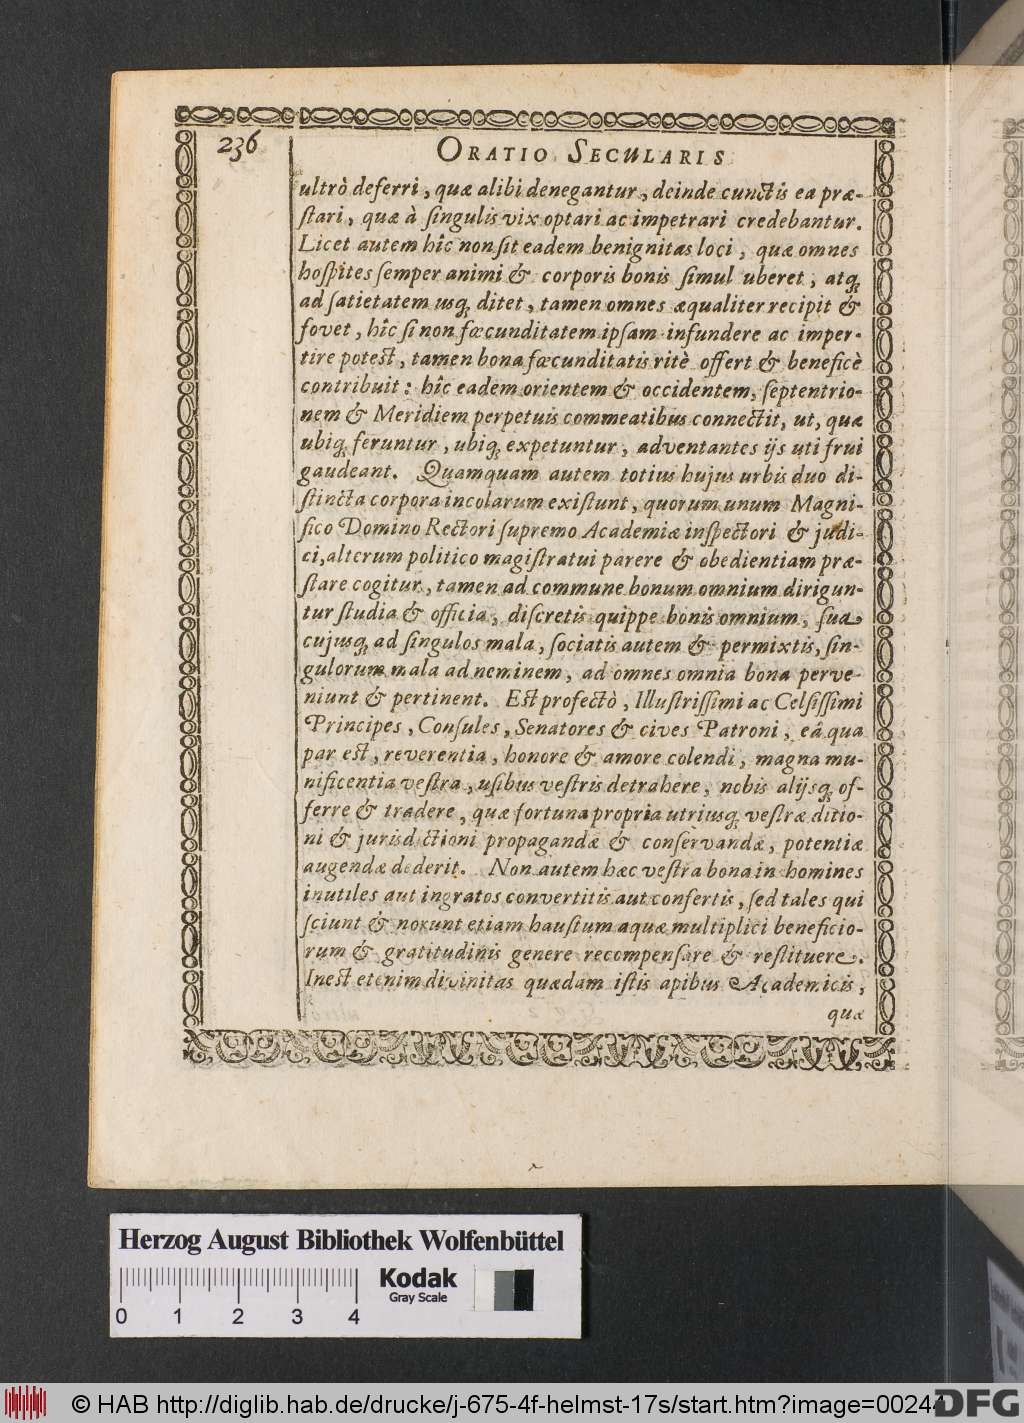 236
ORATIO SECULARIS
ultrò deferri, quæ alibi denegantur, deinde cunctis ea præ-
ſtari, quæ à ſingulis vix optari ac impetrari credebantur.
Licet autem hîc non ſit eadem benignitas loci, quæ omnes
hoſpites ſemper animi & corporis bonis ſimul uberet, atq́;
ad ſatietatem usq́; ditet, tamen omnes æqualiter recipit &
fovet, hîc ſi non fœcunditatem ipſam infundere ac imper-
tire poteſt, tamen bona fœcunditatis ritè offert & beneficè
contribuit: hîc eadem orientem & occidentem, ſeptentrio-
nem & Meridiem perpetuis commeatibus connectit, ut, quæ
ubiq́; feruntur, ubiq́; expetuntur, adventantes ijs uti frui
gaudeant. Quamquam autem totius hujus urbis duo di-
ſtincta corpora incolarum exiſtunt, quorum unum Magni-
fico Domino Rectori ſupremo Academiæ inſpectori & judi-
ci, alterum politico magiſtratui parere & obedientiam præ-
ſtare cogitur, tamen ad commune bonum omnium dirigun-
tur ſtudia & officia, diſcretis quippe bonis omnium, ſua
cujusq́; ad ſingulos mala, ſociatis autem & permixtis, ſin-
gulorum mala ad neminem, ad omnes omnia bona perve-
niunt & pertinent. Eſt profectò, Illuſtriſſimi ac Celſiſſimi
Principes, Conſules, Senatores & cives Patroni, eâ qua
par eſt, reverentia, honore & amore colendi, magna mu-
nificentia veſtra, uſibus veſtris detrahere, nobis alijsq́; of-
ferre & tradere, quæ fortuna propria utriusq́; veſtræ ditio-
ni & jurisdictioni propagandæ & conſervandæ, potentiæ
augendæ dederit. Non autem hæc veſtra bona in homines
inutiles aut ingratos convertitis aut confertis, ſed tales qui
ſciunt & norunt etiam hauſtum aquæ multiplici beneficio-
rum & gratitudinis genere recompenſare & reſtituere.
Ineſt etenim divinitas quædam iſtis apibus Academicis,
quæ
Herzog August Bibliothek Wolfenbüttel
Kodak
Gray Scale
0 1 2 3 4
© HAB http://diglib.hab.de/drucke/j-675-4f-helmst-17s/start.htm?image=00244
DFG